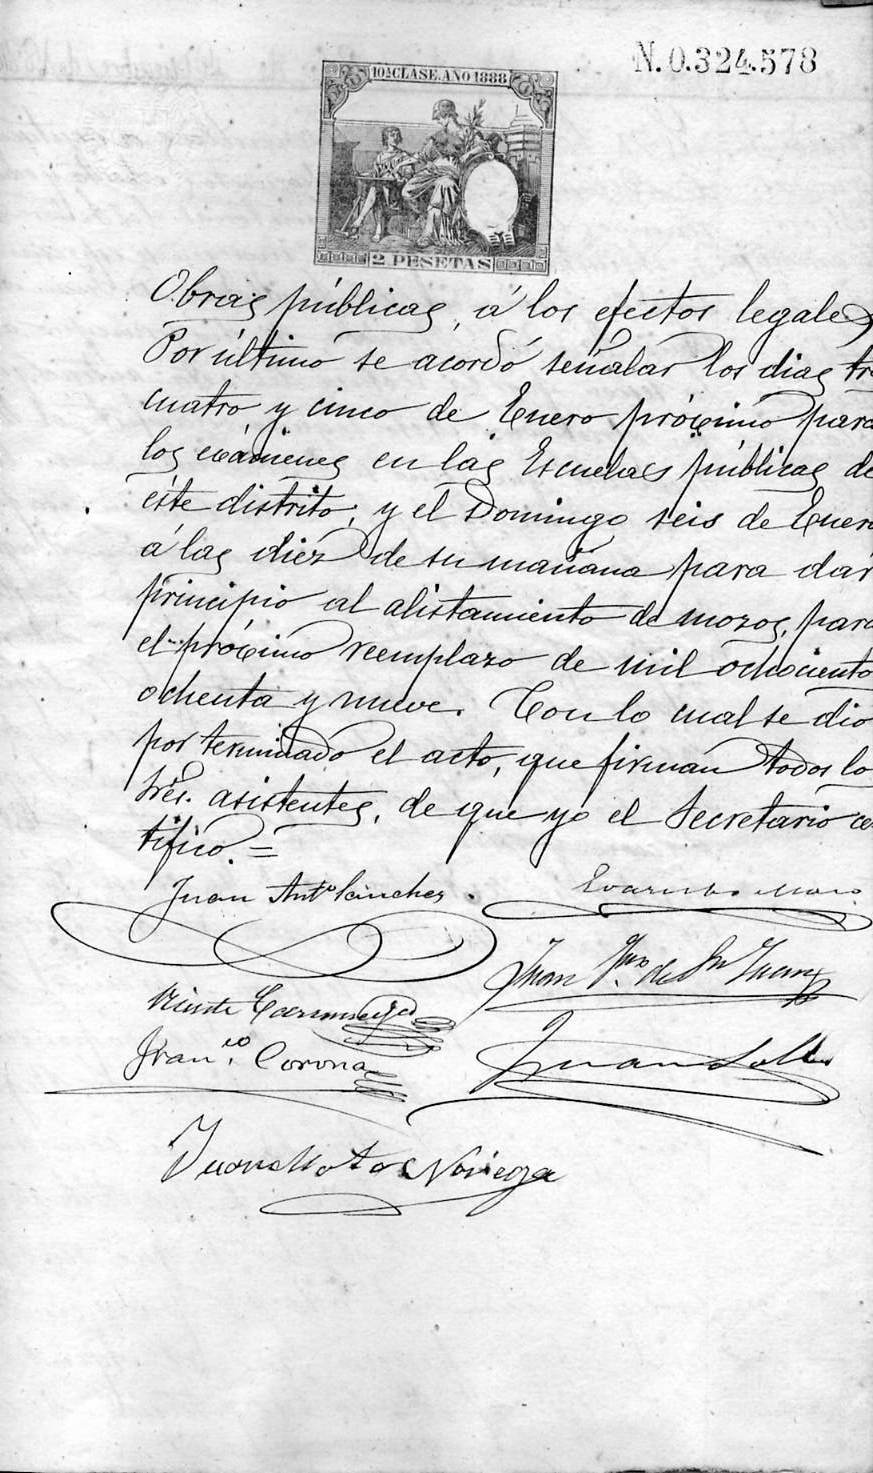 N. 0.324.578
10ª CLASE. AÑO 1888
2 PESETAS
Obras públicas, á los efectos legales,
Por último se acordó señalar los dias tre
cuatro y cinco de Enero próximo para
los exámenes en las Escuelas públicas de
éste distrito; y el Domingo seis de Ener
á las diez de su mañana para dar
principio al alistamiento de mozos, para
el próximo reemplazo de mil ochociento
ochenta y nueve. Con lo cual se dio
por terminado el acto, que firman todos lo
Sres. asistentes, de que yo el Secretario cer
tifico. =
Juan Antº Sanchez
Juan de Sn Juan
Vicente
Franco. Corona
Juan
Juan Matos Noriega